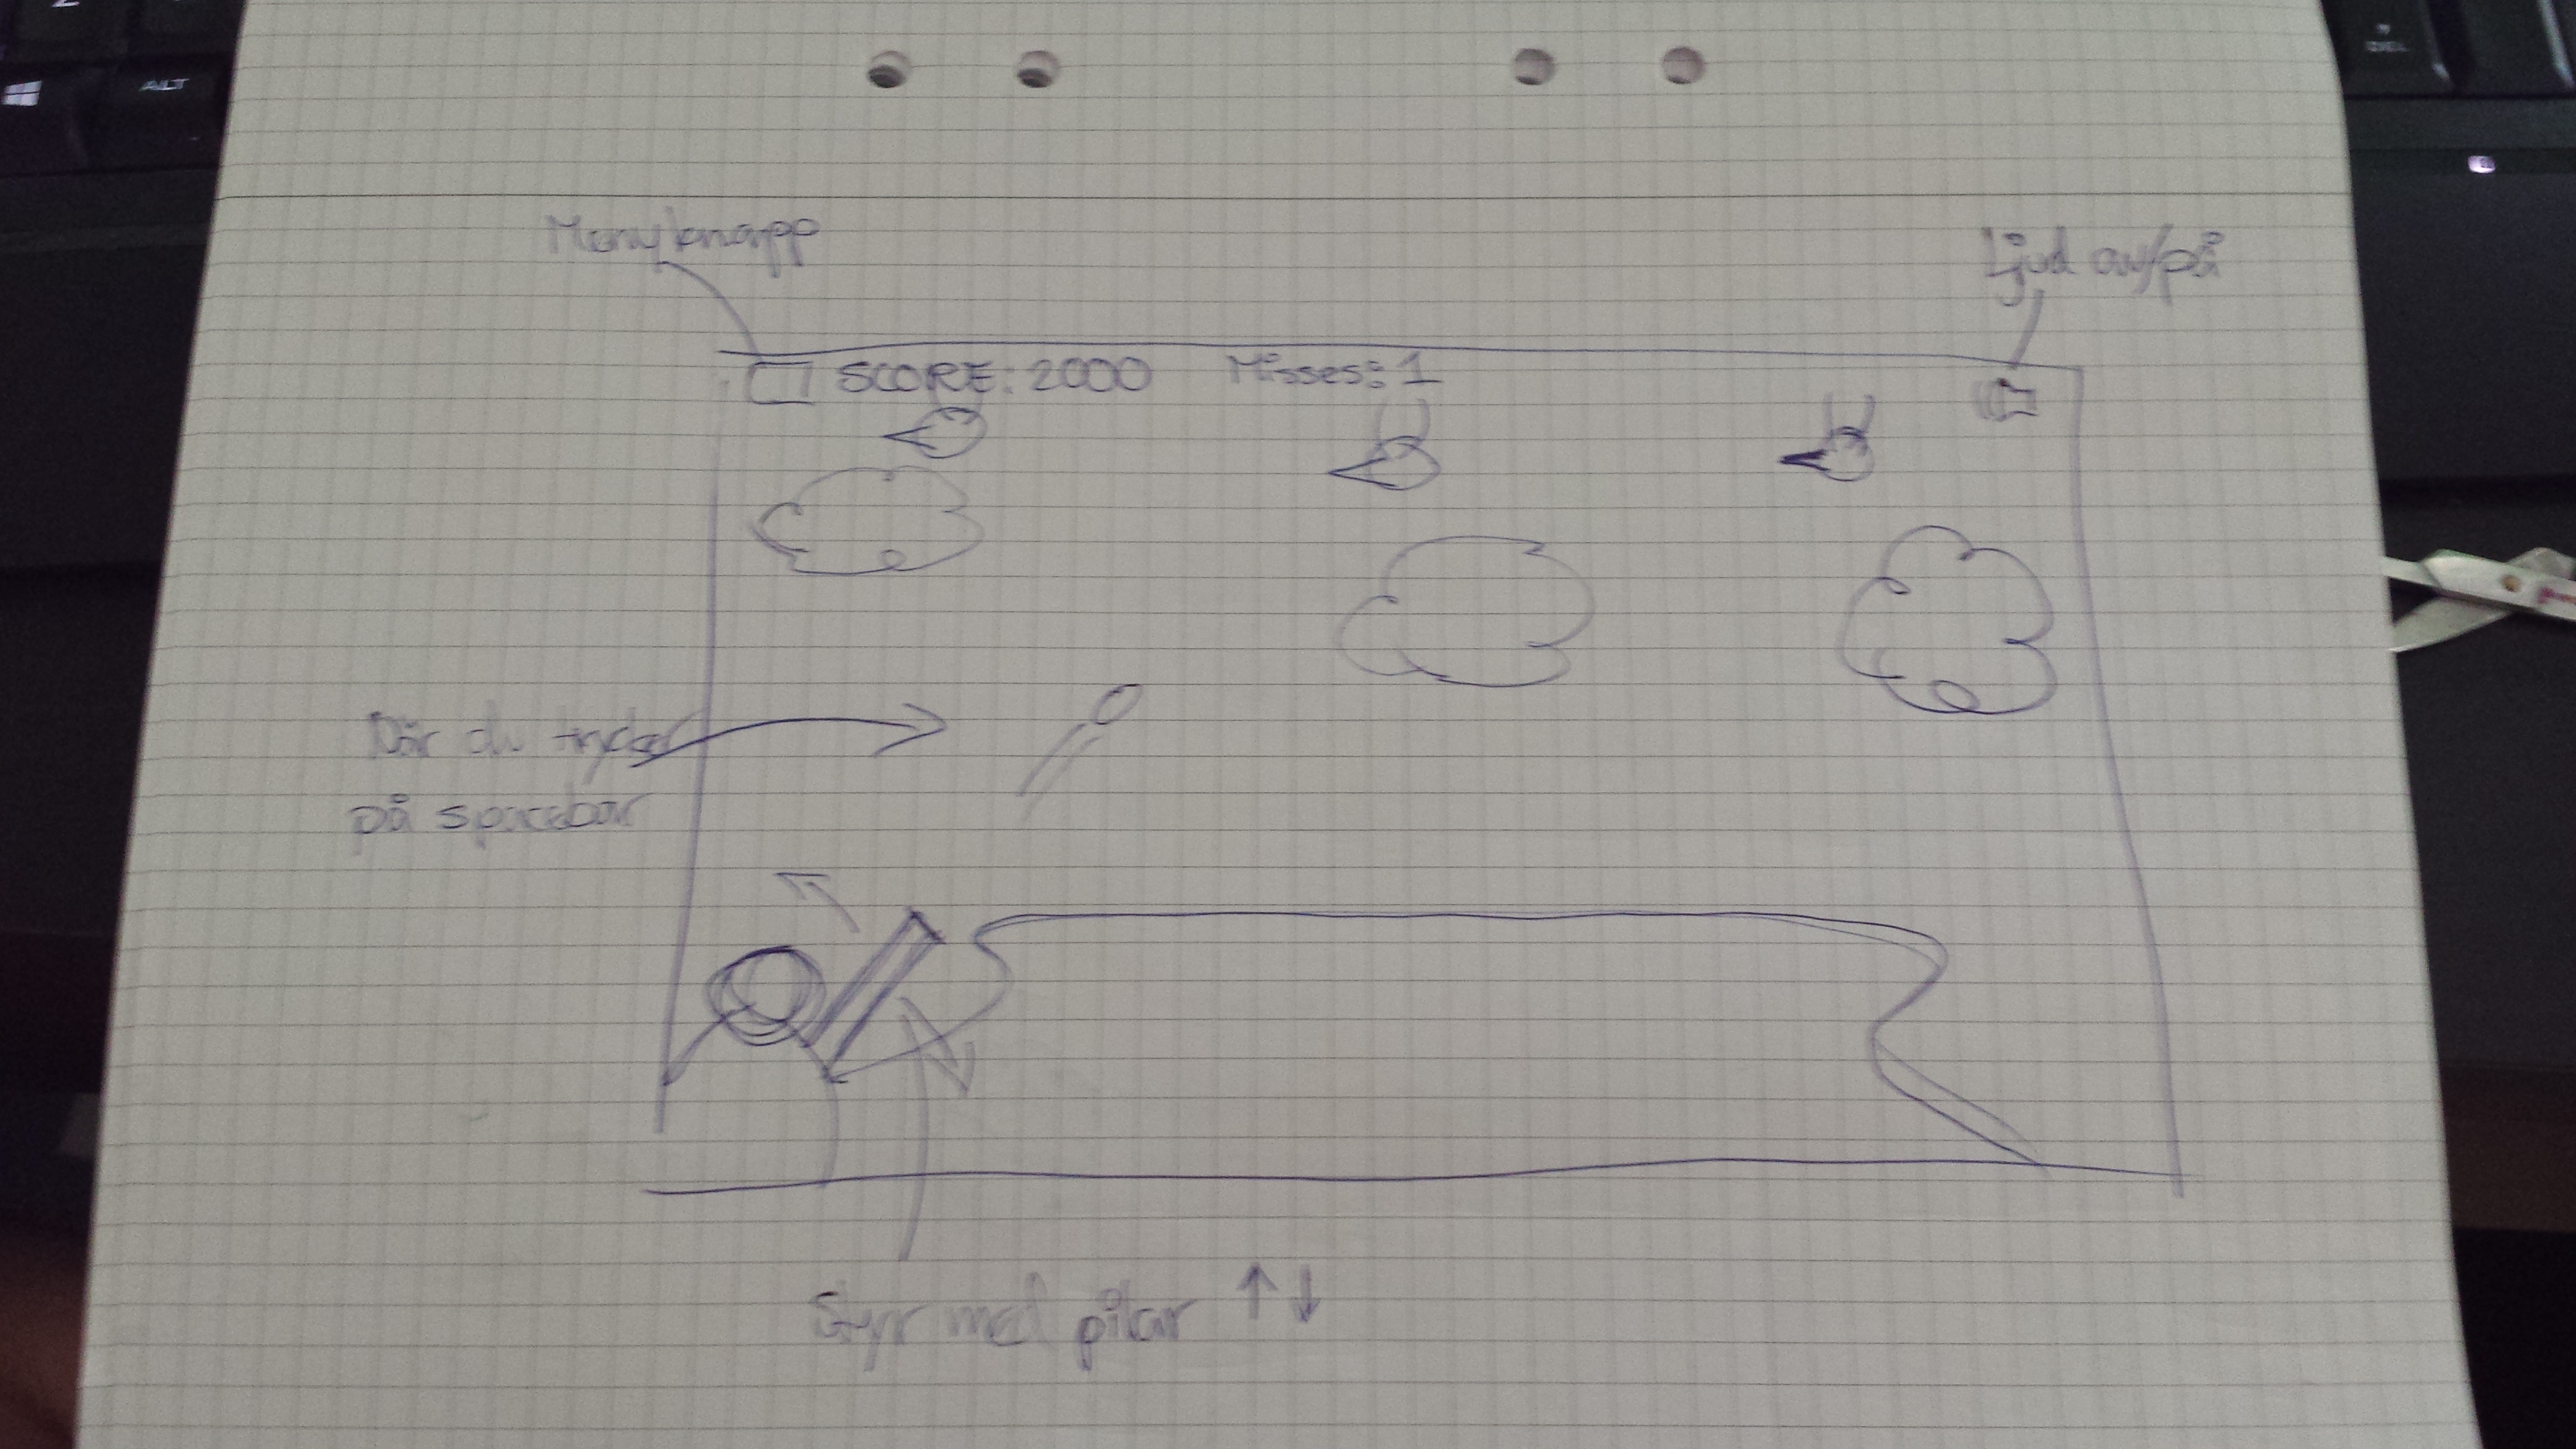 ALT
DEL
Menyknapp
Ljud av/på
SCORE: 2000 Misses: 1
När du trycker
på spacebar
Styr med pilar ↑↓